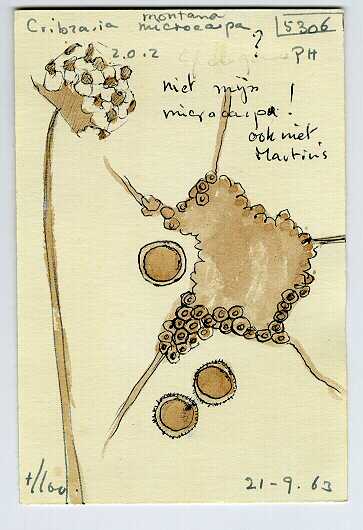 montana
Cribraria microcarpa 5306
2.0.2 ? PH
niet mijn
microcarpa!
ook niet
Martin's
+/100
21-9.63